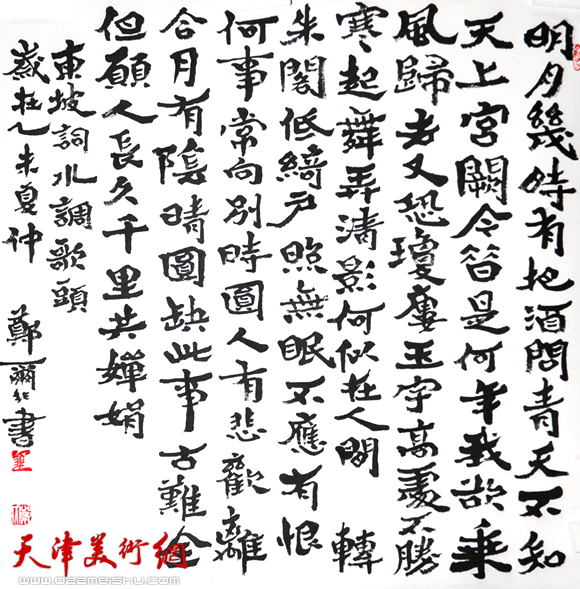 明月幾時有把酒問青天不知
天上宮闕今昔是何年我欲乘
風歸去又恐瓊廔玉宇高處不勝
寒起舞弄清影何似在人間 轉
朱閣低綺戶照無眠不應有恨
何事常向別時圓人有悲歡離
合月有陰晴圓缺此事古難全
但願人長久千里共嬋娟
東坡詞水調歌頭
歲在乙未夏仲 鄭爾非書
天津美術網
www.022meishu.com